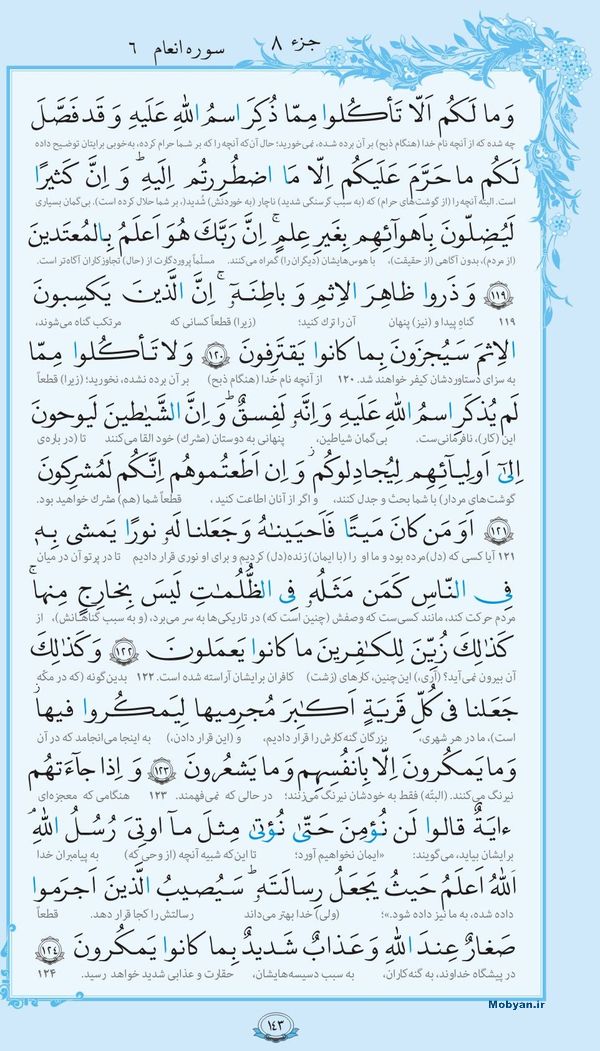 جزء ۸ سوره انعام ۶
وَما لَكُم اَلّا تَأكُلوا مِمّا ذُكِرَ اسمُ اللّٰهِ عَلَيهِ وَ قَد فَصَّلَ
چه شده که از آنچه نام خدا (هنگام ذبح) بر آن برده شده، نمی‌خورید؛ حال آن‌که آنچه را که بر شما حرام کرده، به‌خوبی برایتان توضیح داده
لَكُم ما حَرَّمَ عَلَيكُم اِلّا مَا اضطُرِرتُم اِلَيهِ ۗ وَ اِنَّ كَثيرًا
است. البته آنچه را (از گوشت‌های حرام) که (به سبب گرسنگی شدید) ناچار (به خوردنش) شُدید، بر شما حلال کرده است). بی‌گمان بسیاری
لَيُضِلّونَ بِاَهوآئِهِم بِغَيرِ عِلمٍ ۚ اِنَّ رَبَّكَ هُوَ اَعلَمُ بِالمُعتَدينَ
(از مردم)، بدون آگاهی (از حقیقت)، با هوس‌هایشان (دیگران را) گمراه می‌کنند. مسلّماً پروردگارت از (حال) تجاوزکاران آگاه‌تر است.
﴿۱۱۹﴾ وَ ذَروا ظاهِرَ الاِثمِ وَ باطِنَهٓ ۚ اِنَّ الَّذينَ يَكسِبونَ
۱۱۹ گناه پیدا و (نیز) پنهان آن را ترک کنید؛ (زیرا) قطعاً کسانی که مرتکب گناه می‌شوند،
الاِثمَ سَيُجزَونَ بِما كانوا يَقتَرِفونَ ﴿۱۲۰﴾ وَلا تَأكُلوا مِمّا
به سزای دستاوردشان کیفر خواهند شد. ۱۲۰ از آنچه نام خدا (هنگام ذبح) بر آن برده نشده، نخورید؛ (زیرا) قطعاً
لَم يُذكَرِ اسمُ اللّٰهِ عَلَيهِ وَ اِنَّهٗ لَفِسقٌ ۗ وَ اِنَّ الشَّياطينَ لَيوحونَ
این (کار)، نافرمانی‌ست. بی‌گمان شیاطین، پنهانی به دوستان (مشرک) خود القا می‌کنند تا (درباره‌ی
اِلىٰٓ اَولِيآئِهِم لِيُجادِلوكُم ۖ وَ اِن اَطَعتُموهُم اِنَّكُم لَمُشرِكونَ
گوشت‌های مردار) با شما بحث و جدل کنند، و اگر از آنان اطاعت کنید، قطعاً شما (هم) مشرک خواهید بود.
﴿۱۲۱﴾ اَوَ مَن كانَ مَيتًا فَاَحيَيناهُ وَ جَعَلنا لَهٗ نورًا يَمشى بِهٖ
۱۲۱ آیا کسی که (دل)مرده بود و ما او را (با ایمان) زنده(دل) کردیم و برای او نوری قرار دادیم تا در پرتو آن در میان
فِى النّاسِ كَمَن مَثَلُهٗ فِى الظُّلُماتِ لَيسَ بِخارِجٍ مِنها ۚ
مردم حرکت کند، مانند کسی‌ست که وصفش (چنین است که) در تاریکی‌ها به سر می‌برد، (و به سبب گناهانش)، از
كَذٰلِكَ زُيِّنَ لِلكافِرينَ ما كانوا يَعمَلونَ ﴿۱۲۲﴾ وَ كَذٰلِكَ
آن بیرون نمی‌آید؟ (آری،) این‌چنین، کارهای (زشت) کافران برایشان آراسته شده است. ۱۲۲ بدین‌گونه (که در مکّه
جَعَلنا فى كُلِّ قَريَةٍ اَكابِرَ مُجرِميها لِيَمكُروا فيها ۖ
است)، ما در هر شهری، بزرگان گنه‌کارش را قرار دادیم، و (این قرار دادن،) به اینجا می‌انجامد که در آن
وَما يَمكُرونَ اِلّا بِاَنفُسِهِم وَما يَشعُرونَ ﴿۱۲۳﴾ وَ اِذا جآءَتهُم
نیرنگ می‌کنند. (البتّه) فقط به خودشان نیرنگ می‌زنند؛ در حالی که نمی‌فهمند. ۱۲۳ هنگامی که معجزه‌ای
ءايَةٌ قالوا لَن نُؤمِنَ حَتّىٰ نُؤتىٰ مِثلَ مآ اوتِىَ رُسُلُ اللّٰهِ ۘ
برایشان بیاید، می‌گویند: «ایمان نخواهیم آورد؛ تا این‌که شبیه آنچه (از وحی که) به پیامبران خدا
اَللّٰهُ اَعلَمُ حَيثُ يَجعَلُ رِسالَتَهٗ ۗ سَيُصيبُ الَّذينَ اَجرَموا
داده شده، به ما نیز داده شود.»؛ (ولی) خدا بهتر می‌داند رسالتش را کجا قرار دهد. قطعاً
صَغارٌ عِندَ اللّٰهِ وَ عَذابٌ شَديدٌ بِما كانوا يَمكُرونَ ﴿۱۲۴﴾
در پیشگاه خداوند، به گنه‌کاران، به سبب دسیسه‌هایشان، حقارت و عذابی شدید خواهد رسید. ۱۲۴
۱۴۳
Mobyan.ir